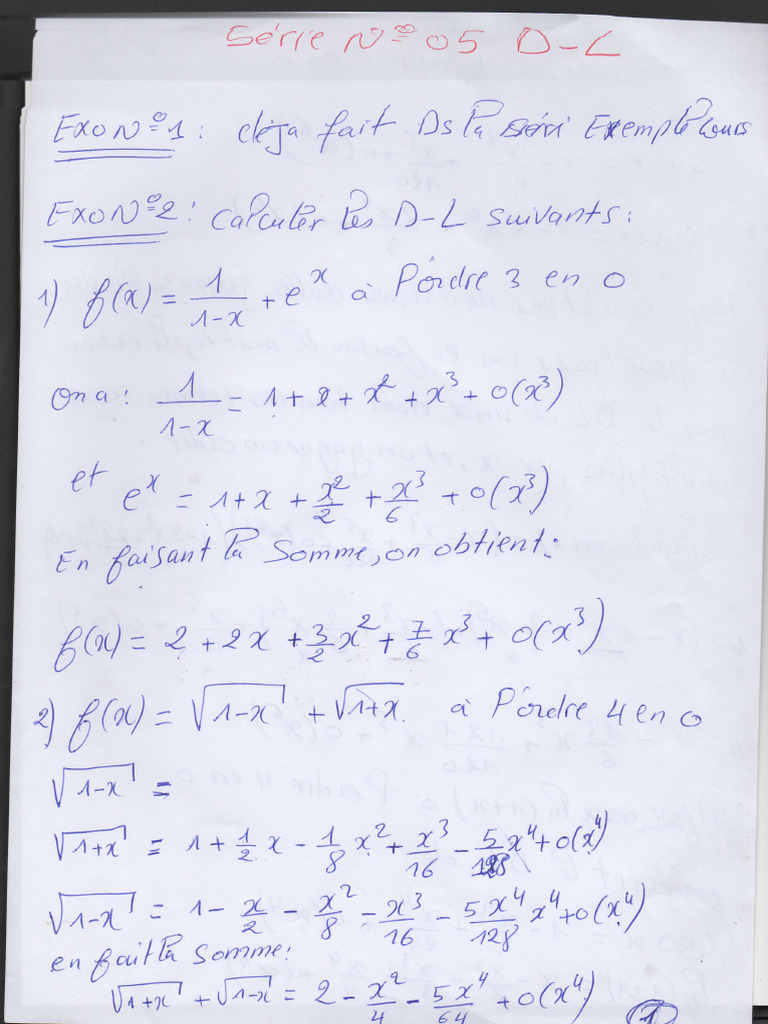 Série N°05 D-L
Exo N°1 : déja fait Ds la série Exemple cours
Exo N°2 : calculer les D-L suivants :
1) f(x) = 1/(1-x) + e^x à l'ordre 3 en 0
on a : 1/(1-x) = 1 + x + x² + x³ + o(x³)
et e^x = 1 + x + x²/2 + x³/6 + o(x³)
En faisant la somme, on obtient :
f(x) = 2 + 2x + 3/2 x² + 7/6 x³ + o(x³)
2) f(x) = √(1-x) + √(1+x) à l'ordre 4 en 0
√(1-x) =
√(1+x) = 1 + 1/2 x - 1/8 x² + x³/16 - 5/128 x⁴ + o(x⁴)
√(1-x) = 1 - x/2 - x²/8 - x³/16 - 5x⁴/128 x⁴ + o(x⁴)
en fait la somme :
√(1+x) + √(1-x) = 2 - x²/4 - 5x⁴/64 + o(x⁴)
1